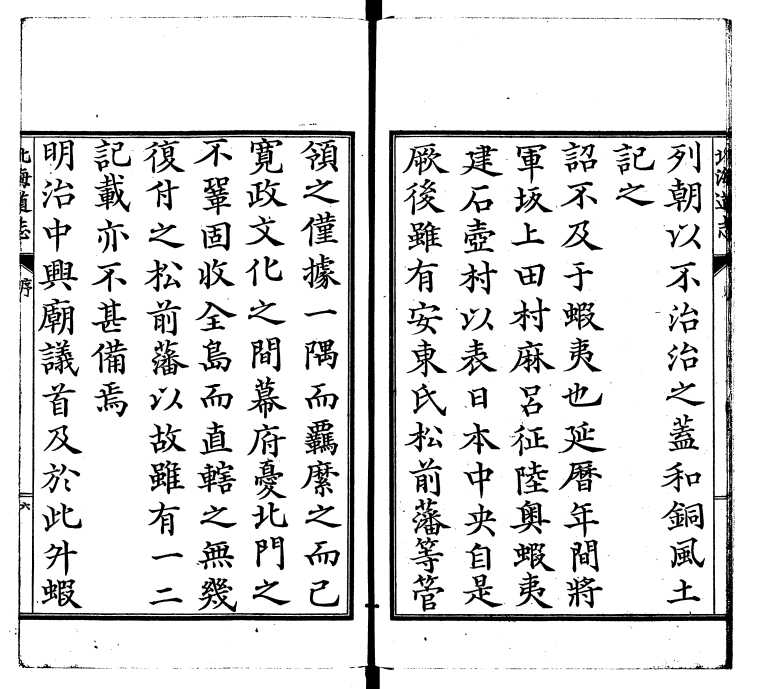 列朝以不治治之蓋和銅風土
記之
詔不及于蝦夷也延曆年間將
軍坂上田村麻呂征陸奧蝦夷
建石壺村以表日本中央自是
厥後雖有安東氏松前藩等管
領之僅據一隅而羈縻之而已
寬政文化之間幕府憂北門之
不鞏固收全島而直轄之無幾
復付之松前藩以故雖有一二
記載亦不甚備焉
明治中興廟議首及於此外蝦
北海道志
序
六